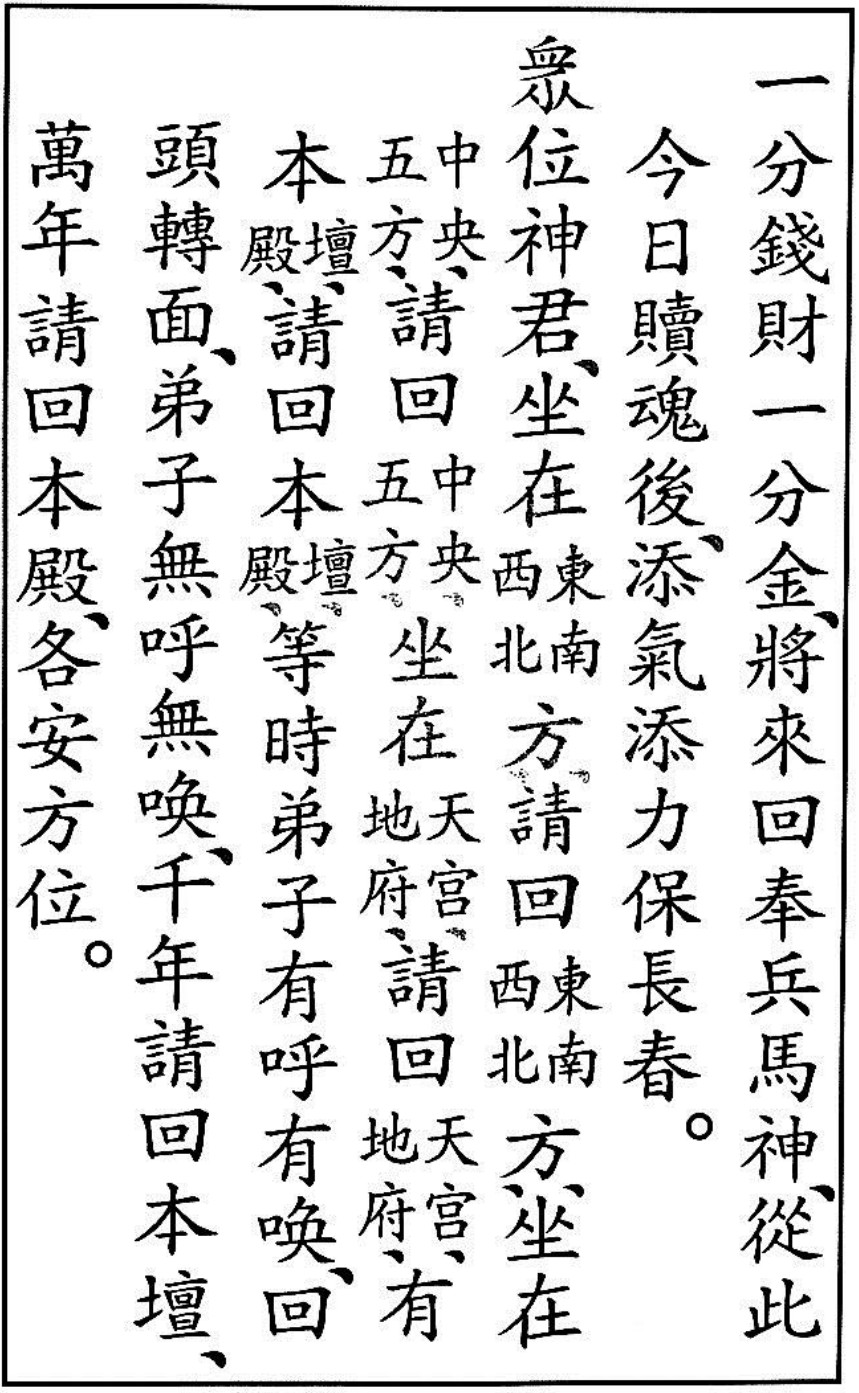 一分錢財一分金、將來回奉兵馬神、從此
今日贖魂後、添氣添力保長春。
衆位神君、坐在東南西北方、請回東南西北方、坐在
中央、五方、請回中央、五方、坐在天宮、地府、請回天宮、地府、有
本壇、殿、請回本壇、殿、等時弟子有呼有喚、回
頭轉面、弟子無呼無喚、千年請回本壇、
萬年請回本殿、各安方位。